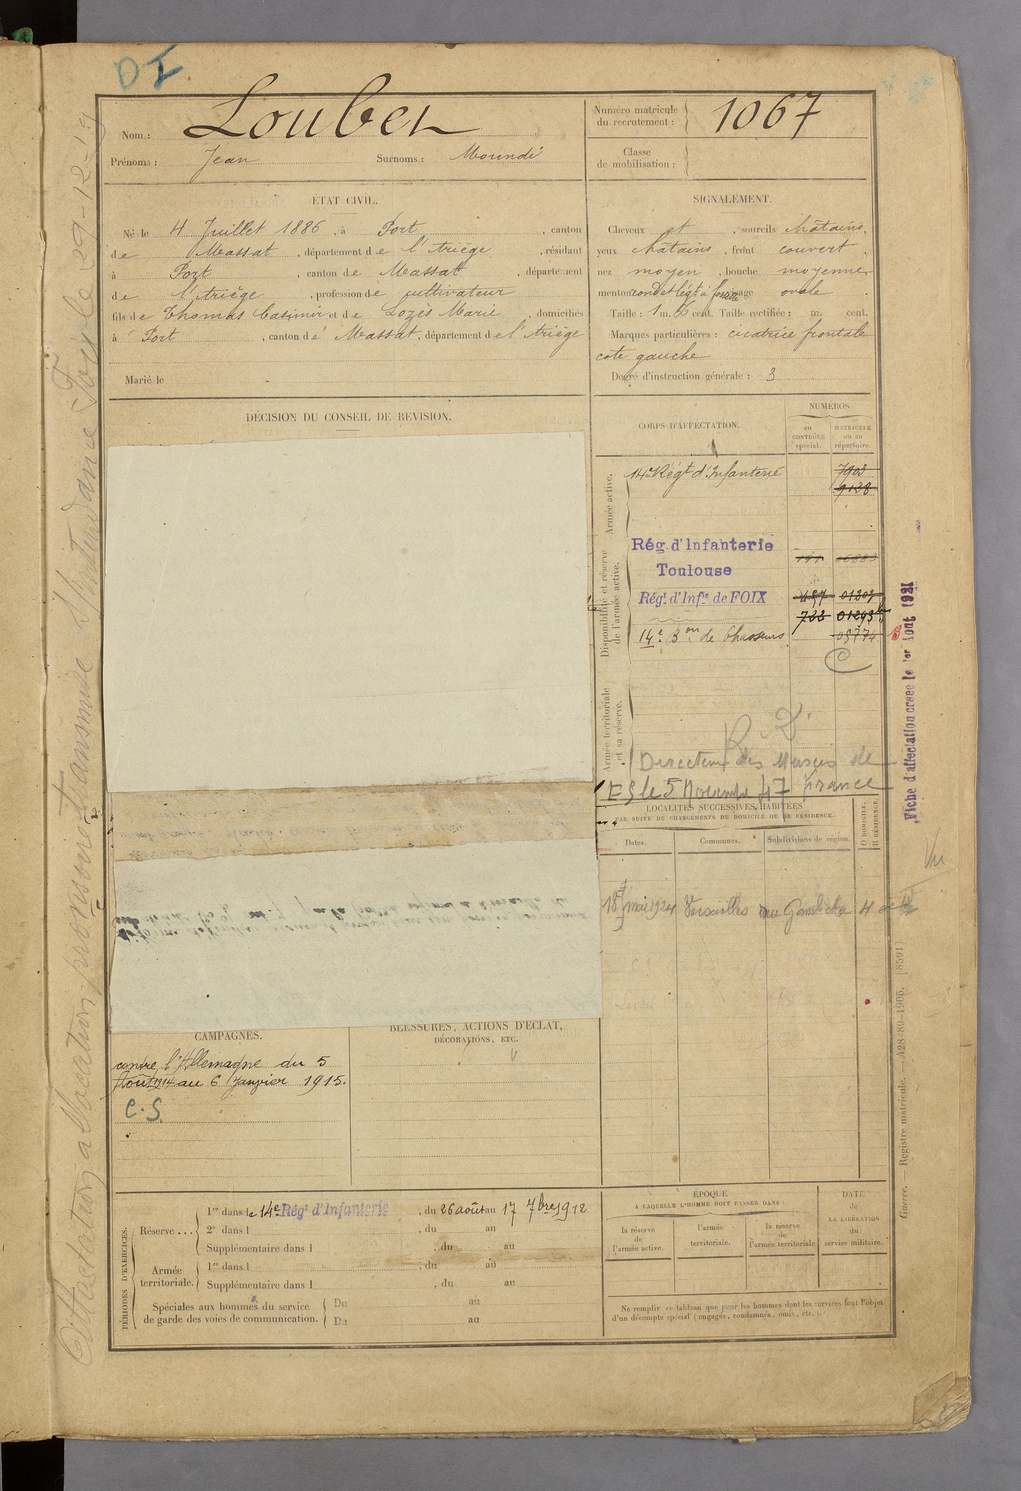 DI
Nom : Loubet
Numéro matricule du recrutement : 1067
Prénoms : Jean Surnoms : Moundi
Classe de mobilisation :
ÉTAT CIVIL.
Né le 4 Juillet 1886, à Port, canton
de Massat, département de l'Ariège, résidant
à Port, canton de Massat, département
de l'Ariège, profession de cultivateur
fils de Thomas Casimir et de Lozes Marie, domiciliés
à Port, canton de Massat, département de l'Ariège
Marié le
SIGNALEMENT.
Cheveux et sourcils châtains,
yeux châtains, front couvert,
nez moyen, bouche moyenne,
menton rond et légt à fossette visage ovale.
Taille : 1 m. cent. Taille rectifiée : m. cent.
Marques particulières : cicatrice frontale
côté gauche
Degré d'instruction générale : 3
DÉCISION DU CONSEIL DE RÉVISION.
CORPS D'AFFECTATION.
NUMÉROS
au CONTRÔLE spécial.
MATRICULE ou au répertoire.
Armée active.
14e Régt d'Infanterie 7903
9128
Disponibilité et réserve de l'armée active.
Rég. d'Infanterie
Toulouse
Régt d'Infie de FOIX 487 01209
722 01293
14e Bon de Chasseurs 05774
Armée territoriale et sa réserve.
Direction des Musées de
France
le 5 Novembre 47
LOCALITÉS SUCCESSIVES HABITÉES
PAR SUITE DE CHANGEMENTS DE DOMICILE OU DE RÉSIDENCE.
Dates. Communes. Subdivisions de région. D DOMICILE. R RÉSIDENCE.
18 mai 1924 Versailles rue Gambetta 4
CAMPAGNES.
contre l'Allemagne du 5
Août 1914 au 6 Janvier 1915.
C.S.
BLESSURES, ACTIONS D'ÉCLAT,
DÉCORATIONS, ETC.
PÉRIODES D'EXERCICES.
Réserve...
1re dans le 14e Régt d'Infanterie, du 26 août au 17 7bre 1912
2e dans l , du au
Supplémentaire dans l , du au
Armée territoriale.
1re dans l , du au
Supplémentaire dans l , du au
Spéciales aux hommes du service de garde des voies de communication.
Du au
Du au
ÉPOQUE
À LAQUELLE L'HOMME DOIT PASSER DANS :
la réserve de l'armée active.
l'armée territoriale.
la réserve de l'armée territoriale
DATE de LA LIBÉRATION du service militaire.
Ne remplir ce tableau que pour les hommes dont les services font l'objet
d'un décompte spécial (engagés, condamnés, omis, etc.).
Fiche d'affectation créée le 1er Août 1921
Vu
Guerre. — Registre matricule. — A28-89-1905. [8591]